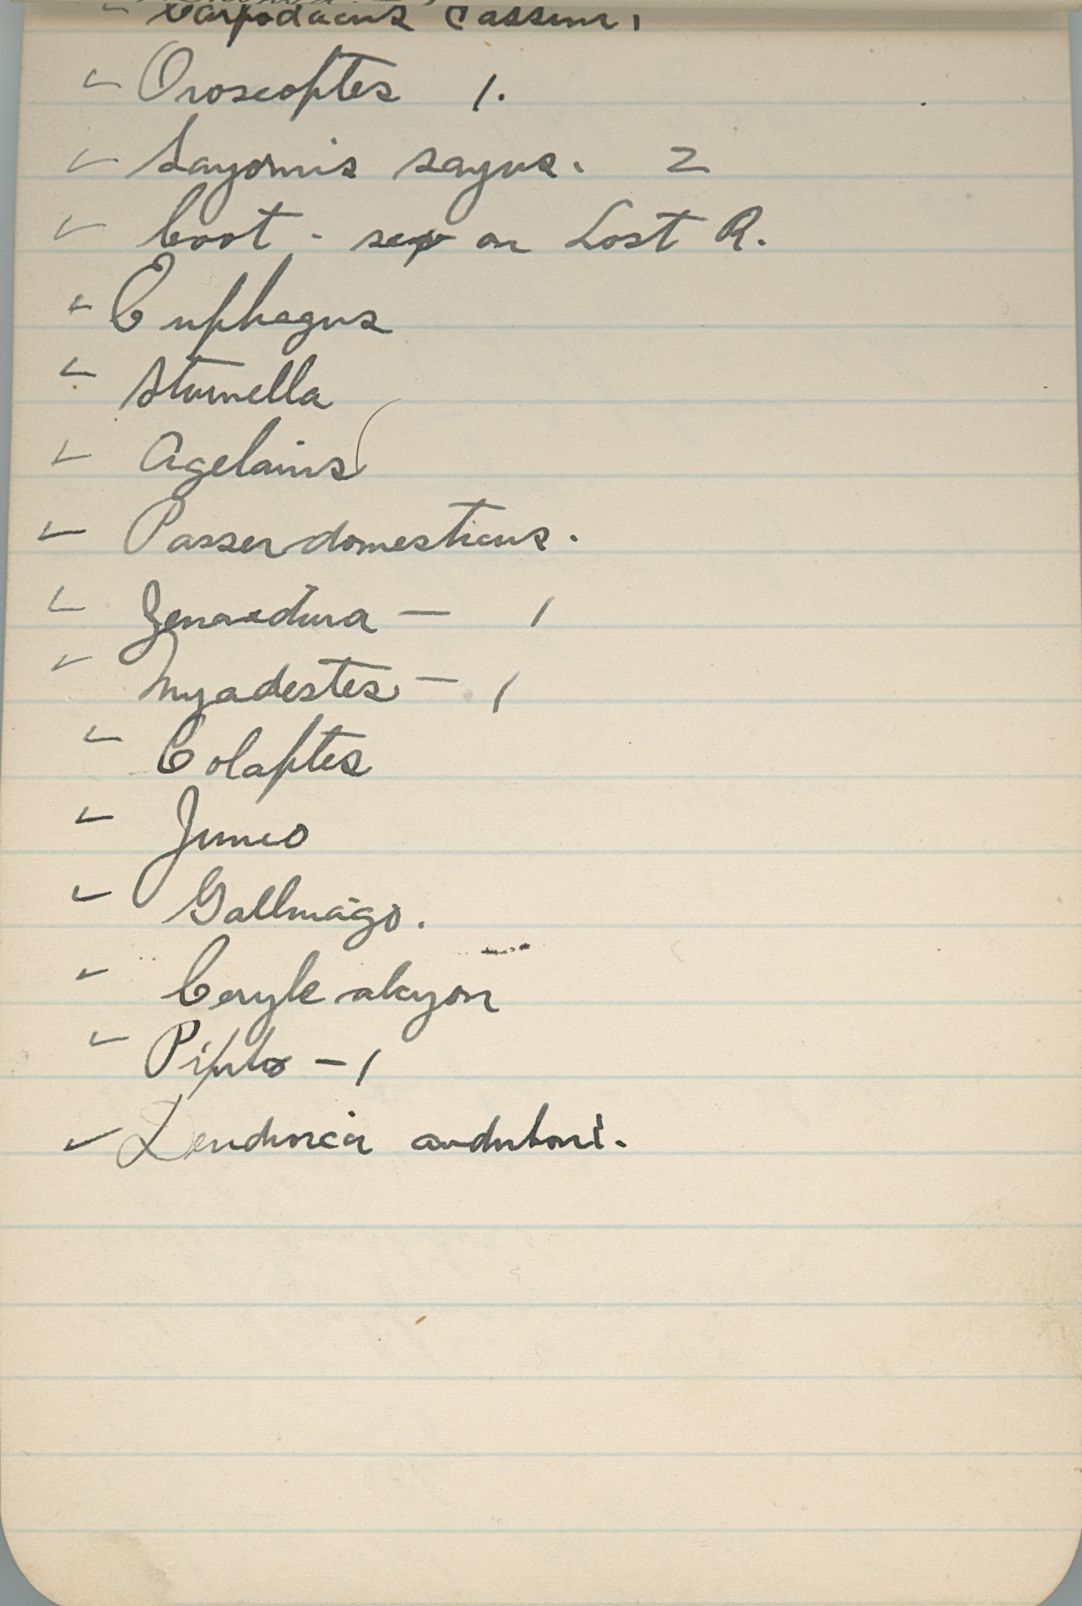 ✓ Carpodacus Cassini,
✓ Oroscoptes 1.
✓ Sayornis sayus. 2
✓ Coot - on Lost R.
✓ Euphagus
✓ Sturnella
✓ Agelaius
✓ Passer domesticus.
✓ Zenaedura — 1
✓ Myadestes — 1
✓ Colaptes
✓ Junco
✓ Gallinago.
✓ Ceryle alcyon
✓ Pipilo — 1
✓ Dendroica auduboni.